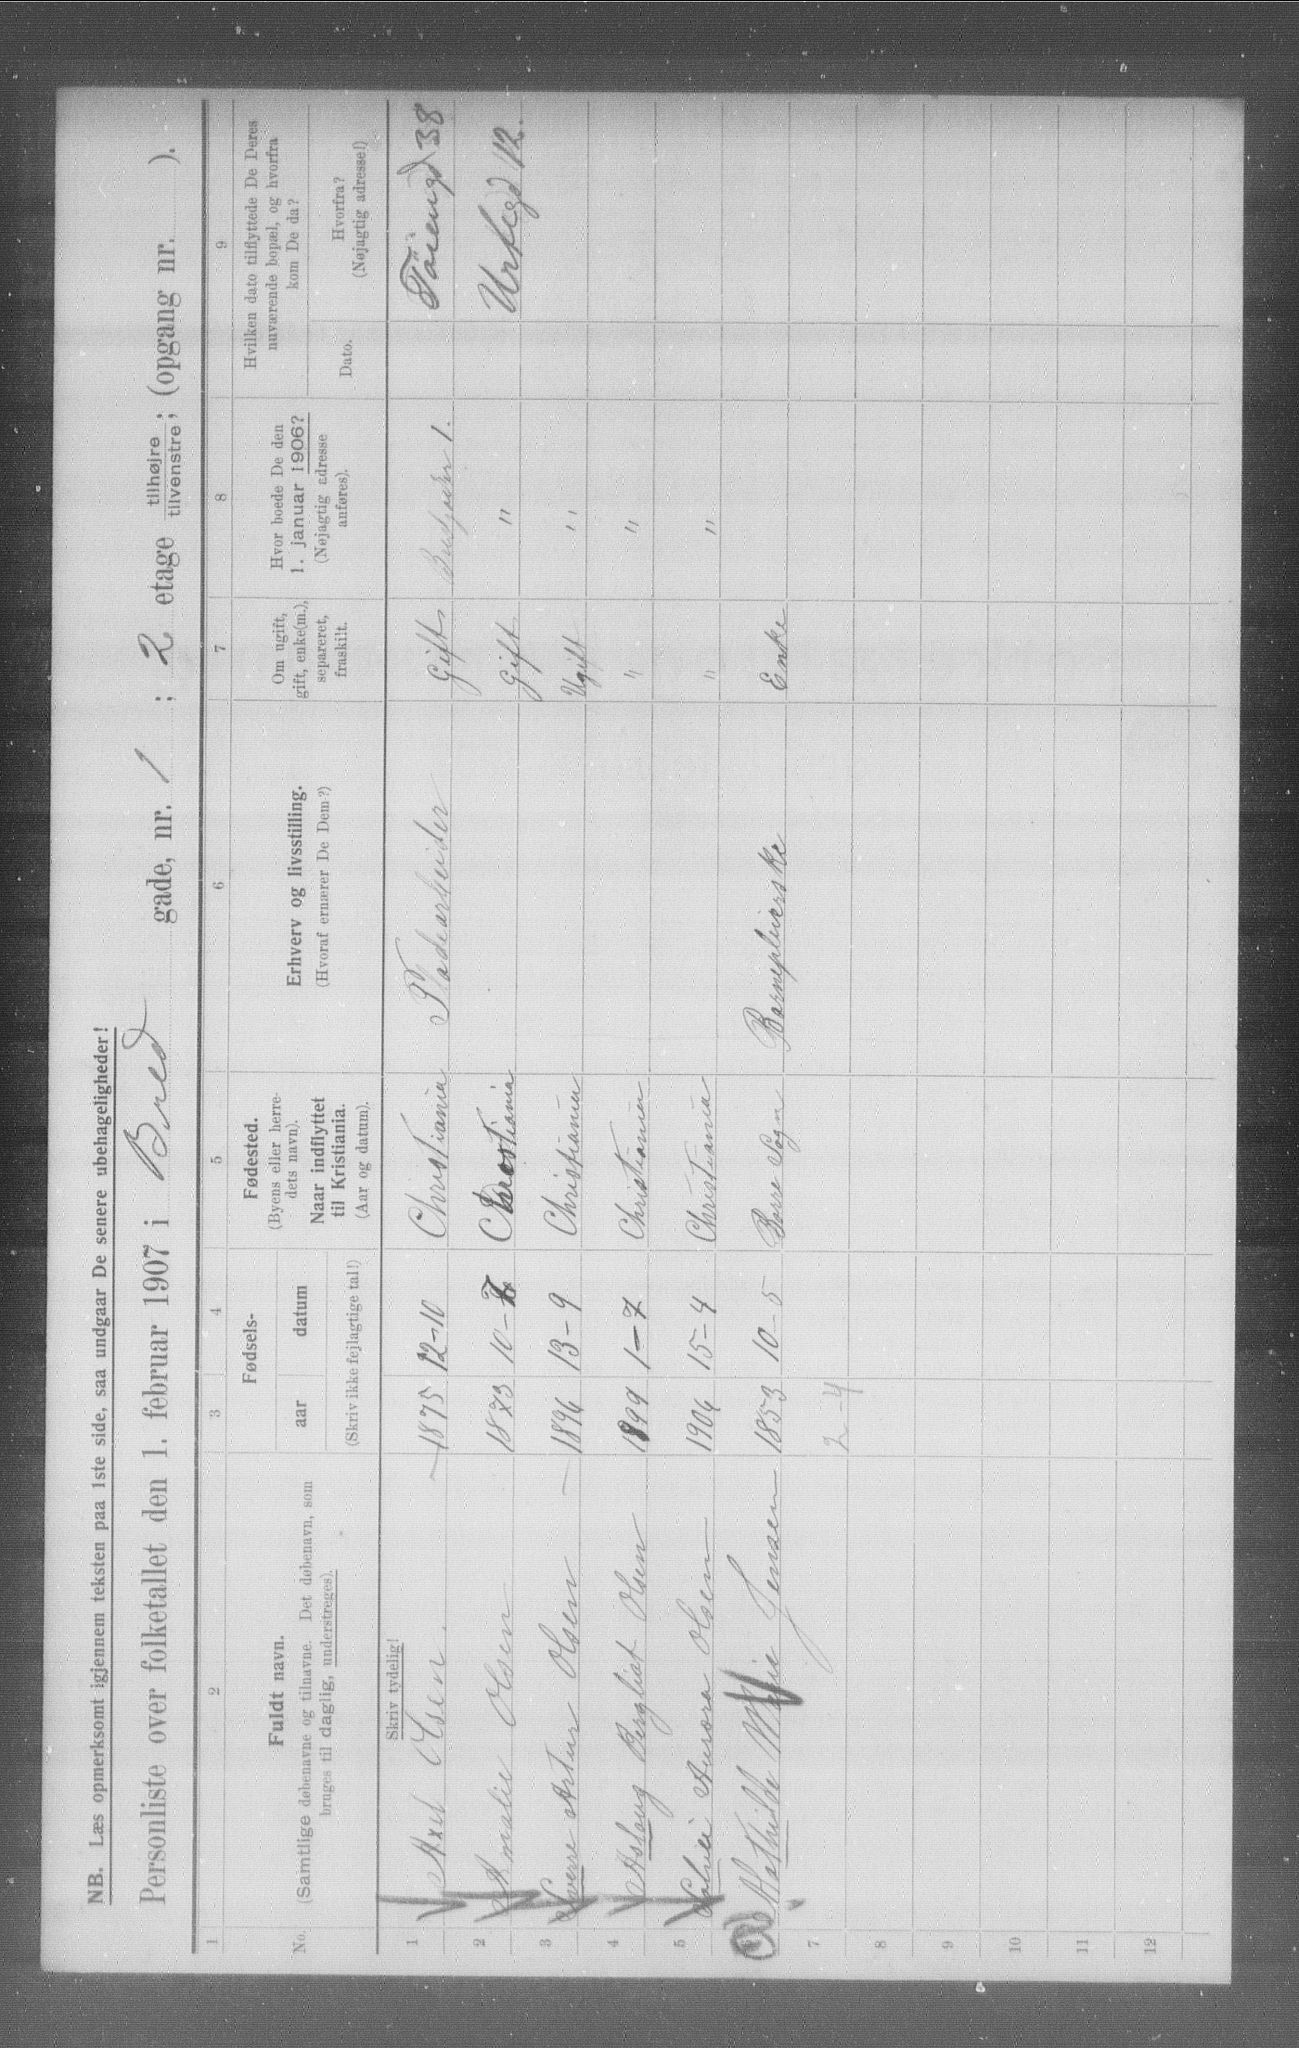 NB. Læs opmerksomt igjennem teksten paa 1ste side, saa undgaar De senere ubehageligheder!
Personliste over folketallet den 1. februar 1907 i Bred gade, nr. 1 ; 2 etage tilhøjre tilvenstre ; (opgang nr. ).
1 2 3 4 5 6 7 8 9
No.
Fuldt navn.
(Samtlige døbenavne og tilnavne. Det døbenavn, som
bruges til daglig, understreges).
Fødsels-
aar datum
(Skriv ikke fejlagtige tal!)
Fødested.
(Byens eller herre-
dets navn).
Naar indflyttet
til Kristiania.
(Aar og datum).
Erhverv og livsstilling.
(Hvoraf ernærer De Dem?)
Om ugift,
gift, enke(m.),
separeret,
fraskilt.
Hvor boede De den
1. januar 1906?
(Nøjagtig adresse
anføres).
Hvilken dato tilflyttede De Deres
nuværende bopæl, og hvorfra
kom De da?
Dato.
Hvorfra?
(Nøjagtig adresse!)
Skriv tydelig!
1 Axel Olsen. 1875 12-10 Christiania Gift 1. 38
2 Amalie Olsen 1873 10- Christiania Gift " Urtegd 12.
3 Sverre Artur Olsen 1896 13-9 Christiania Ugift "
4 Aslaug Bergliot Olsen 1899 1-7 Christiania " "
5 Solvei Aurora Olsen 1906 15-4 Christiania " "
6 Mathilde Marie Jensen 1853 10-5 Borre Sogn Barnepleierske Enke
7 2-4
8
9
10
11
12